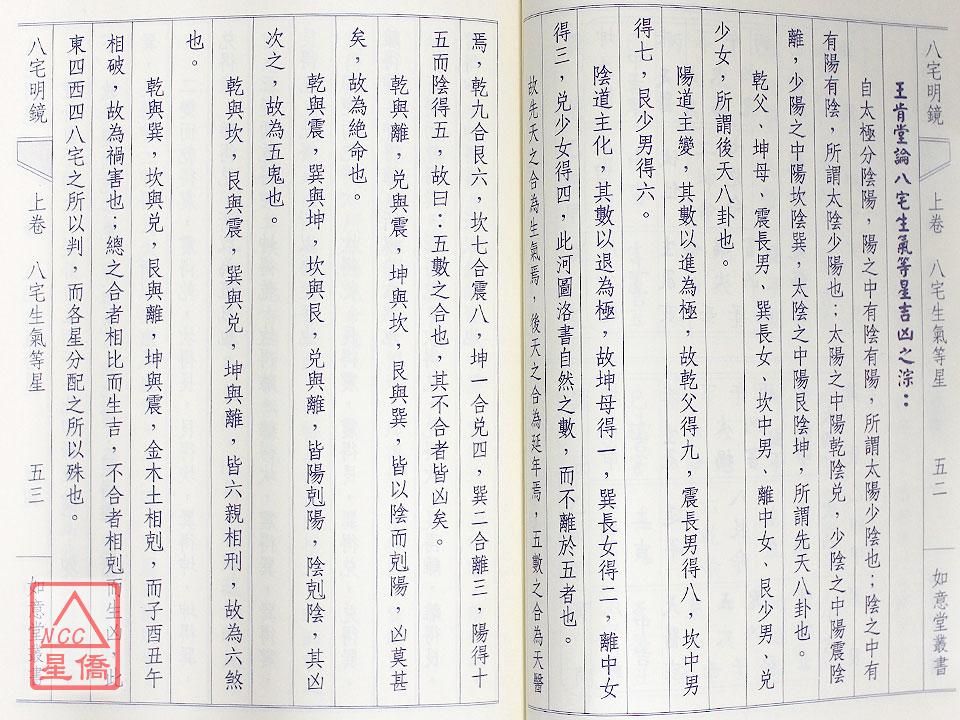 八宅明鏡 上卷 八宅生氣等星 五二 如意堂叢書
王肯堂論八宅生氣等星吉凶之淙：
自太極分陰陽，陽之中有陰有陽，所謂太陽少陰也；陰之中有
有陽有陰，所謂太陰少陽也；太陽之中陽乾陰兌，少陰之中陽震陰
離，少陽之中陽坎陰巽，太陰之中陽艮陰坤，所謂先天八卦也。
乾父、坤母、震長男、巽長女、坎中男、離中女、艮少男、兌
少女，所謂後天八卦也。
陽道主變，其數以進為極，故乾父得九，震長男得八，坎中男
得七，艮少男得六。
陰道主化，其數以退為極，故坤母得一，巽長女得二，離中女
得三，兌少女得四，此河圖洛書自然之數，而不離於五者也。
故先天之合為生氣焉，後天之合為延年焉，五數之合為天醫
焉，乾九合艮六，坎七合震八，坤一合兌四，巽二合離三，陽得十
五而陰得五，故曰：五數之合也，其不合者皆凶矣。
乾與離，兌與震，坤與坎，艮與巽，皆以陰而剋陽，凶莫甚
矣，故為絕命也。
乾與震，巽與坤，坎與艮，兌與離，皆陽剋陽，陰剋陰，其凶
次之，故為五鬼也。
乾與坎，艮與震，巽與兌，坤與離，皆六親相刑，故為六煞
也。
乾與巽，坎與兌，艮與離，坤與震，金木土相剋，而子酉丑午
相破，故為禍害也；總之合者相比而生吉，不合者相剋而生凶，此
東四西四八宅之所以判，而各星分配之所以殊也。
八宅明鏡 上卷 八宅生氣等星 五三 如意堂叢書
NCC
星僑